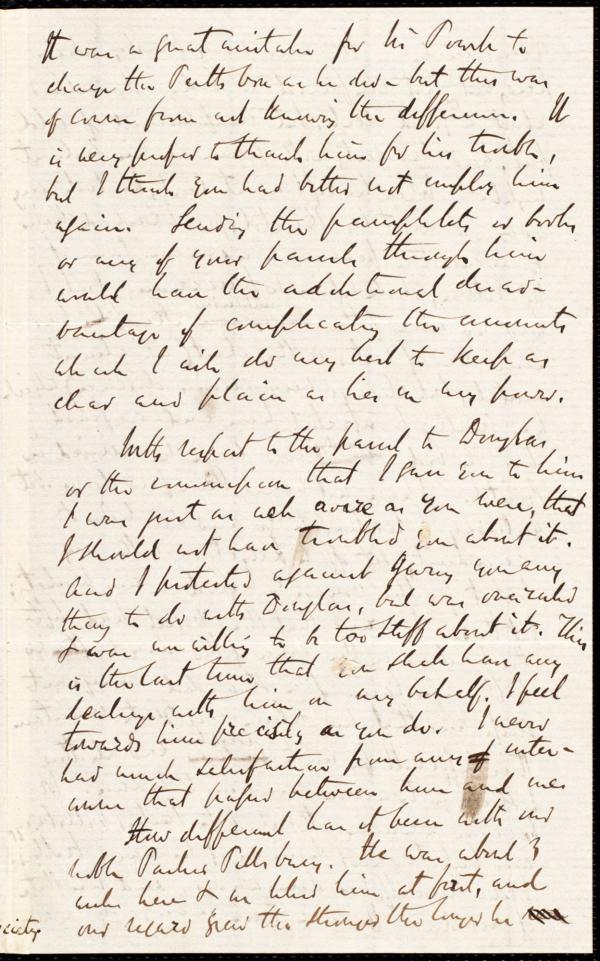 It was a great mistake for Mr Powell to
charge the Perth box as he did - but this was
of course from not knowing the difference. It
is very proper to thank him for his trouble,
but I think you had better not employ him
again. Sending the pamphlets or books
or any of your parcels through him
would have the additional disad-
vantage of complicating the accounts
which I will do my best to keep as
clear and plain as lies in my power.
With respect to the parcel to Douglas
or the commission that I gave you to him
I was just as well aware as you were, that
I should not have troubled you about it.
And I protested against giving you any
thing to do with Douglas, but was overruled
& was unwilling to be too stiff about it. This
is the last time that you shall have any
dealings with him on my behalf. I feel
towards him precisely as you do. I never
had much satisfaction from any of inter-
views that passed between him and me
How different has it been with our
noble Parker Pillsbury. He was about 3
weeks here & we liked him at first, and
our regard grew the stronger the longer he